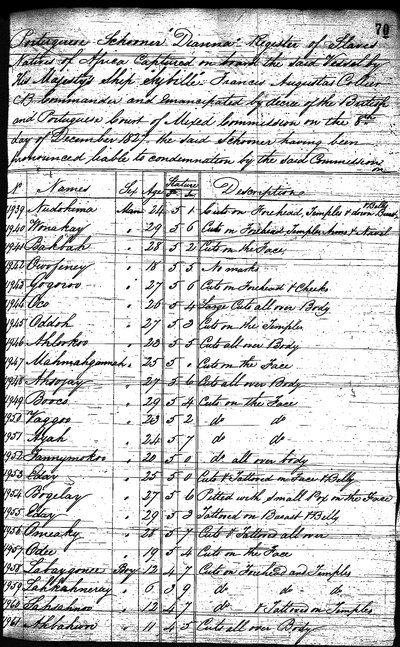 70
Portuguese Schooner "Dianna" Register of Slaves
Natives of Africa Captured on board the said Vessel by
His Majestys Ship Sybille Francis Augustus Collier
CB Commander and Emancipated by decree of the British
and Portuguese Court of Mixed Commission on the 8th
day of December 1827, the said Schooner having been
pronounced liable to condemnation by the said Commission
on
No Names Sex Age Stature Description
Ft In
1939 Nudohima Man 24 5 1 Cuts on Forehead, Temples & down Breast & Belly
1940 Wonakay " 29 5 6 Cuts on Forehead Temples Arms & Navel
1941 Bakoah " 28 5 2 Cuts on the Face
1942 " 18 5 5 No marks
1943 Gogoroo " 27 5 6 Cuts on Forehead & Cheeks
1944 Oco " 26 5 4 Large Cuts all over Body
1945 Oddoh " 27 5 3 Cuts on the Temples
1946 Ahlookoo " 23 5 5 Cuts all over Body
1947 Mahmahgannah " 25 5 " Cuts on the Face
1948 Ahsojay " 27 5 6 Cuts all over Body
1949 Booco " 29 5 4 Cuts on the Face
1950 Vaggoo " 23 5 2 do do
1951 Ayah " 24 5 7 do do
1952 Fannymokoo " 20 5 0 do all over body
1953 Eday " 25 5 0 Cuts & Tattooed on Face & Belly
1954 Bogelay " 27 5 6 Pitted with Small Pox on the Face
1955 Eday " 29 5 3 Tattooed on Breast & Belly
1956 Omeaky " 28 5 7 Cuts & Tattooed all over
1957 Odee " 19 5 4 Cuts on the Face
1958 Labaygonee Boy 12 4 7 Cuts on Forehead and Temples
1959 Lahkahneray " 6 3 9 do do do
1960 " 12 4 7 do & Tattooed on Temples
1961 " 11 4 5 Cuts all over Body